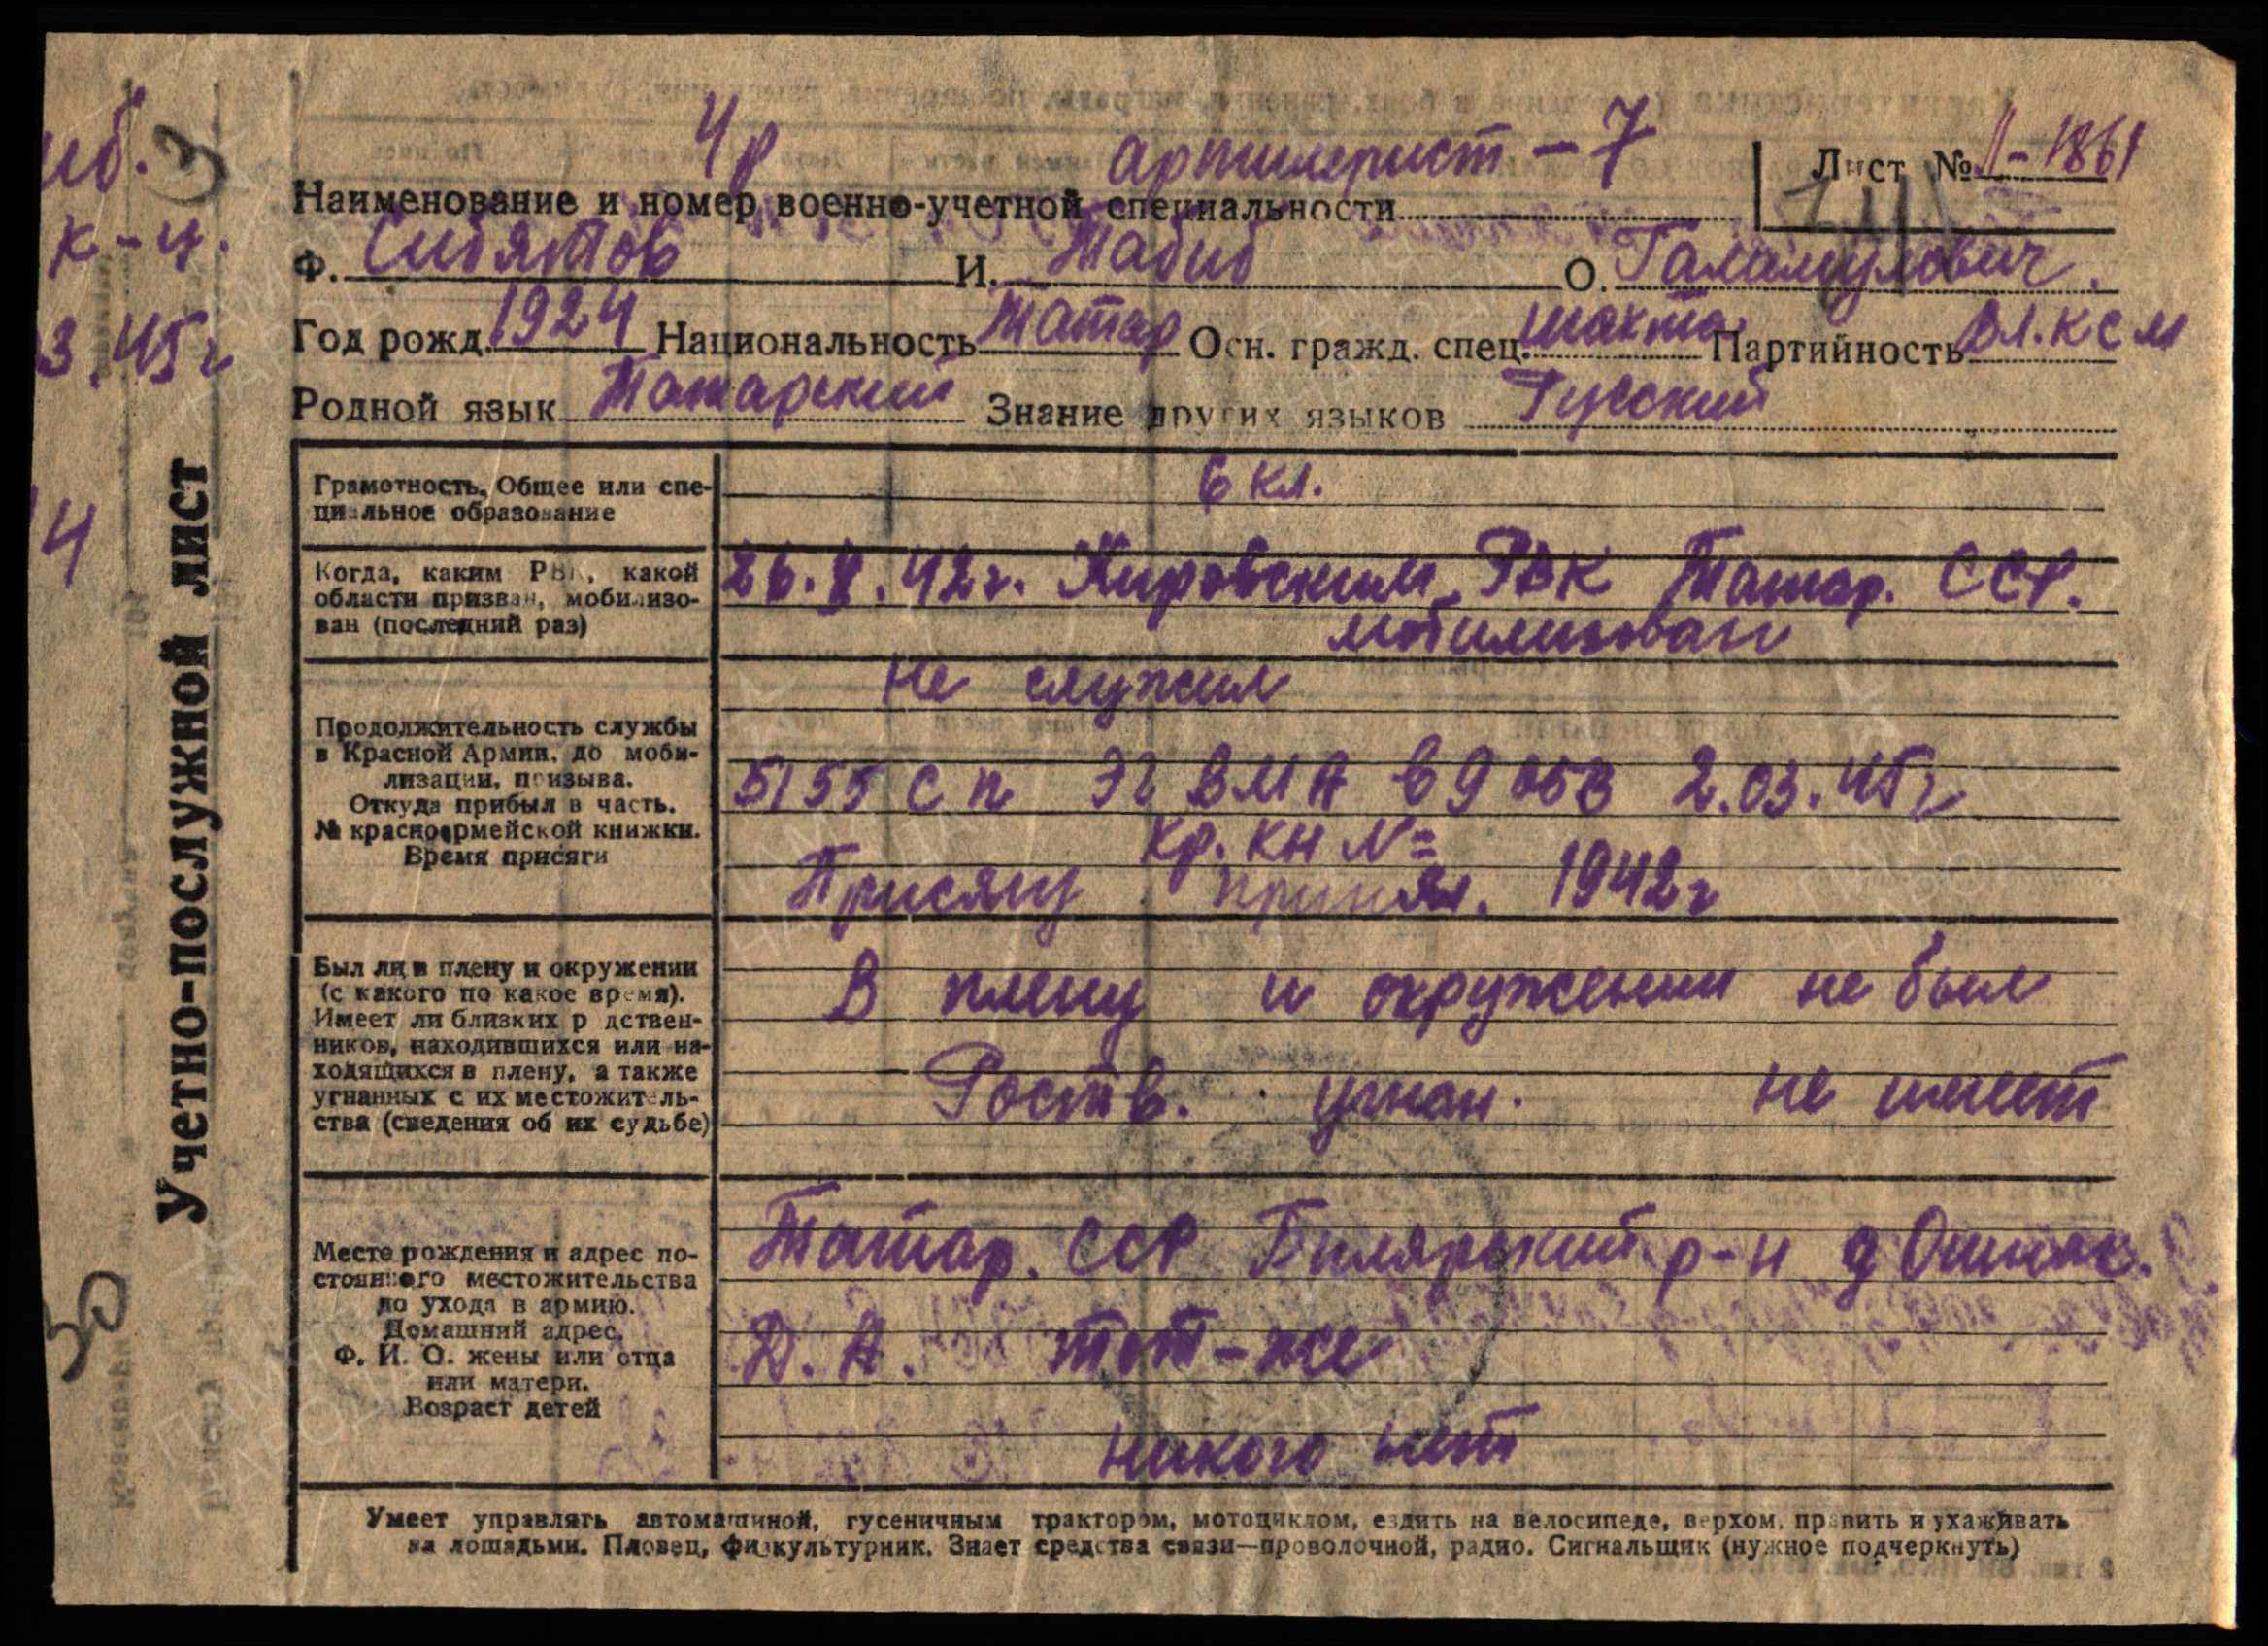 иб. 3
к-ч.
3.45г
4
30
Учетно-послужной лист
4р артилерист - 7
Лист № 11-1861
Наименование и номер военно-учетной специальности
Ф. Сибятов И. Табиб О. Галамулович.
Год рожд. 1924 Национальность Татар Осн. гражд. спец. шахта. Партийность Вл.КСМ
Родной язык Татарский Знание других языков Русский
Грамотность. Общее или спе-
циальное образование
6 кл.
Когда, каким РВК, какой
области призван, мобилизо-
ван (последний раз)
26.V.42г. Кировским РВК Татар. ССР.
мобилизован
Продолжительность службы
в Красной Армии, до моби-
лизации, призыва.
Откуда прибыл в часть.
№ красноармейской книжки.
Время присяги
не служил
5155 СП ЭГ ВМА в 9 ОБВ 2.03.45г
Кр. кн №=
Присягу принял. 1942г
Был ли в плену и окружении
(с какого по какое время).
Имеет ли близких родствен-
ников, находившихся или на-
ходящихся в плену, а также
угнанных с их местожитель-
ства (сведения об их судьбе)
В плену и окружении не был
Роств. угнан. не имеет
Место рождения и адрес по-
стоянного местожительства
до ухода в армию.
Домашний адрес.
Ф. И. О. жены или отца
или матери.
Возраст детей
Татар. ССР Билярский р-н д Ошняк.
Д. А. тот-же
никого нет
Умеет управлять автомашиной, гусеничным трактором, мотоциклом, ездить на велосипеде, верхом, править и ухаживать
за лошадьми. Пловец, физкультурник. Знает средства связи—проволочной, радио. Сигнальщик (нужное подчеркнуть)